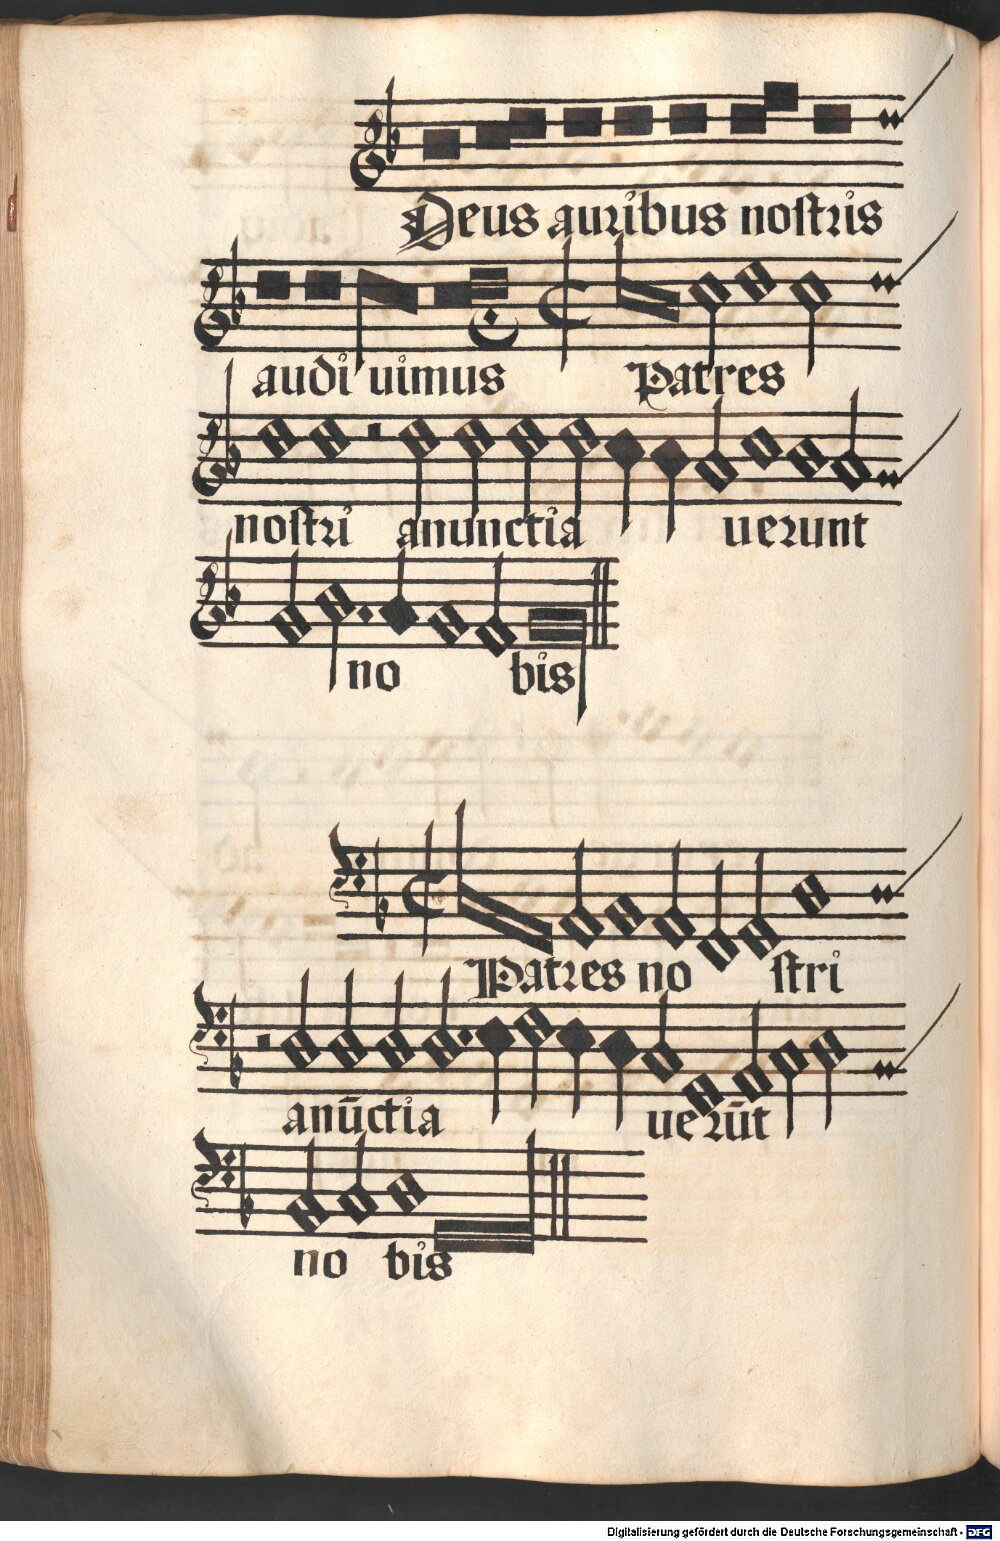 Deus auribus nostris
audi uimus Patres
nostri anunctia uerunt
no bis
Patres no stri
anūctia uerūt
no bis
Digitalisierung gefördert durch die Deutsche Forschungsgemeinschaft - DFG